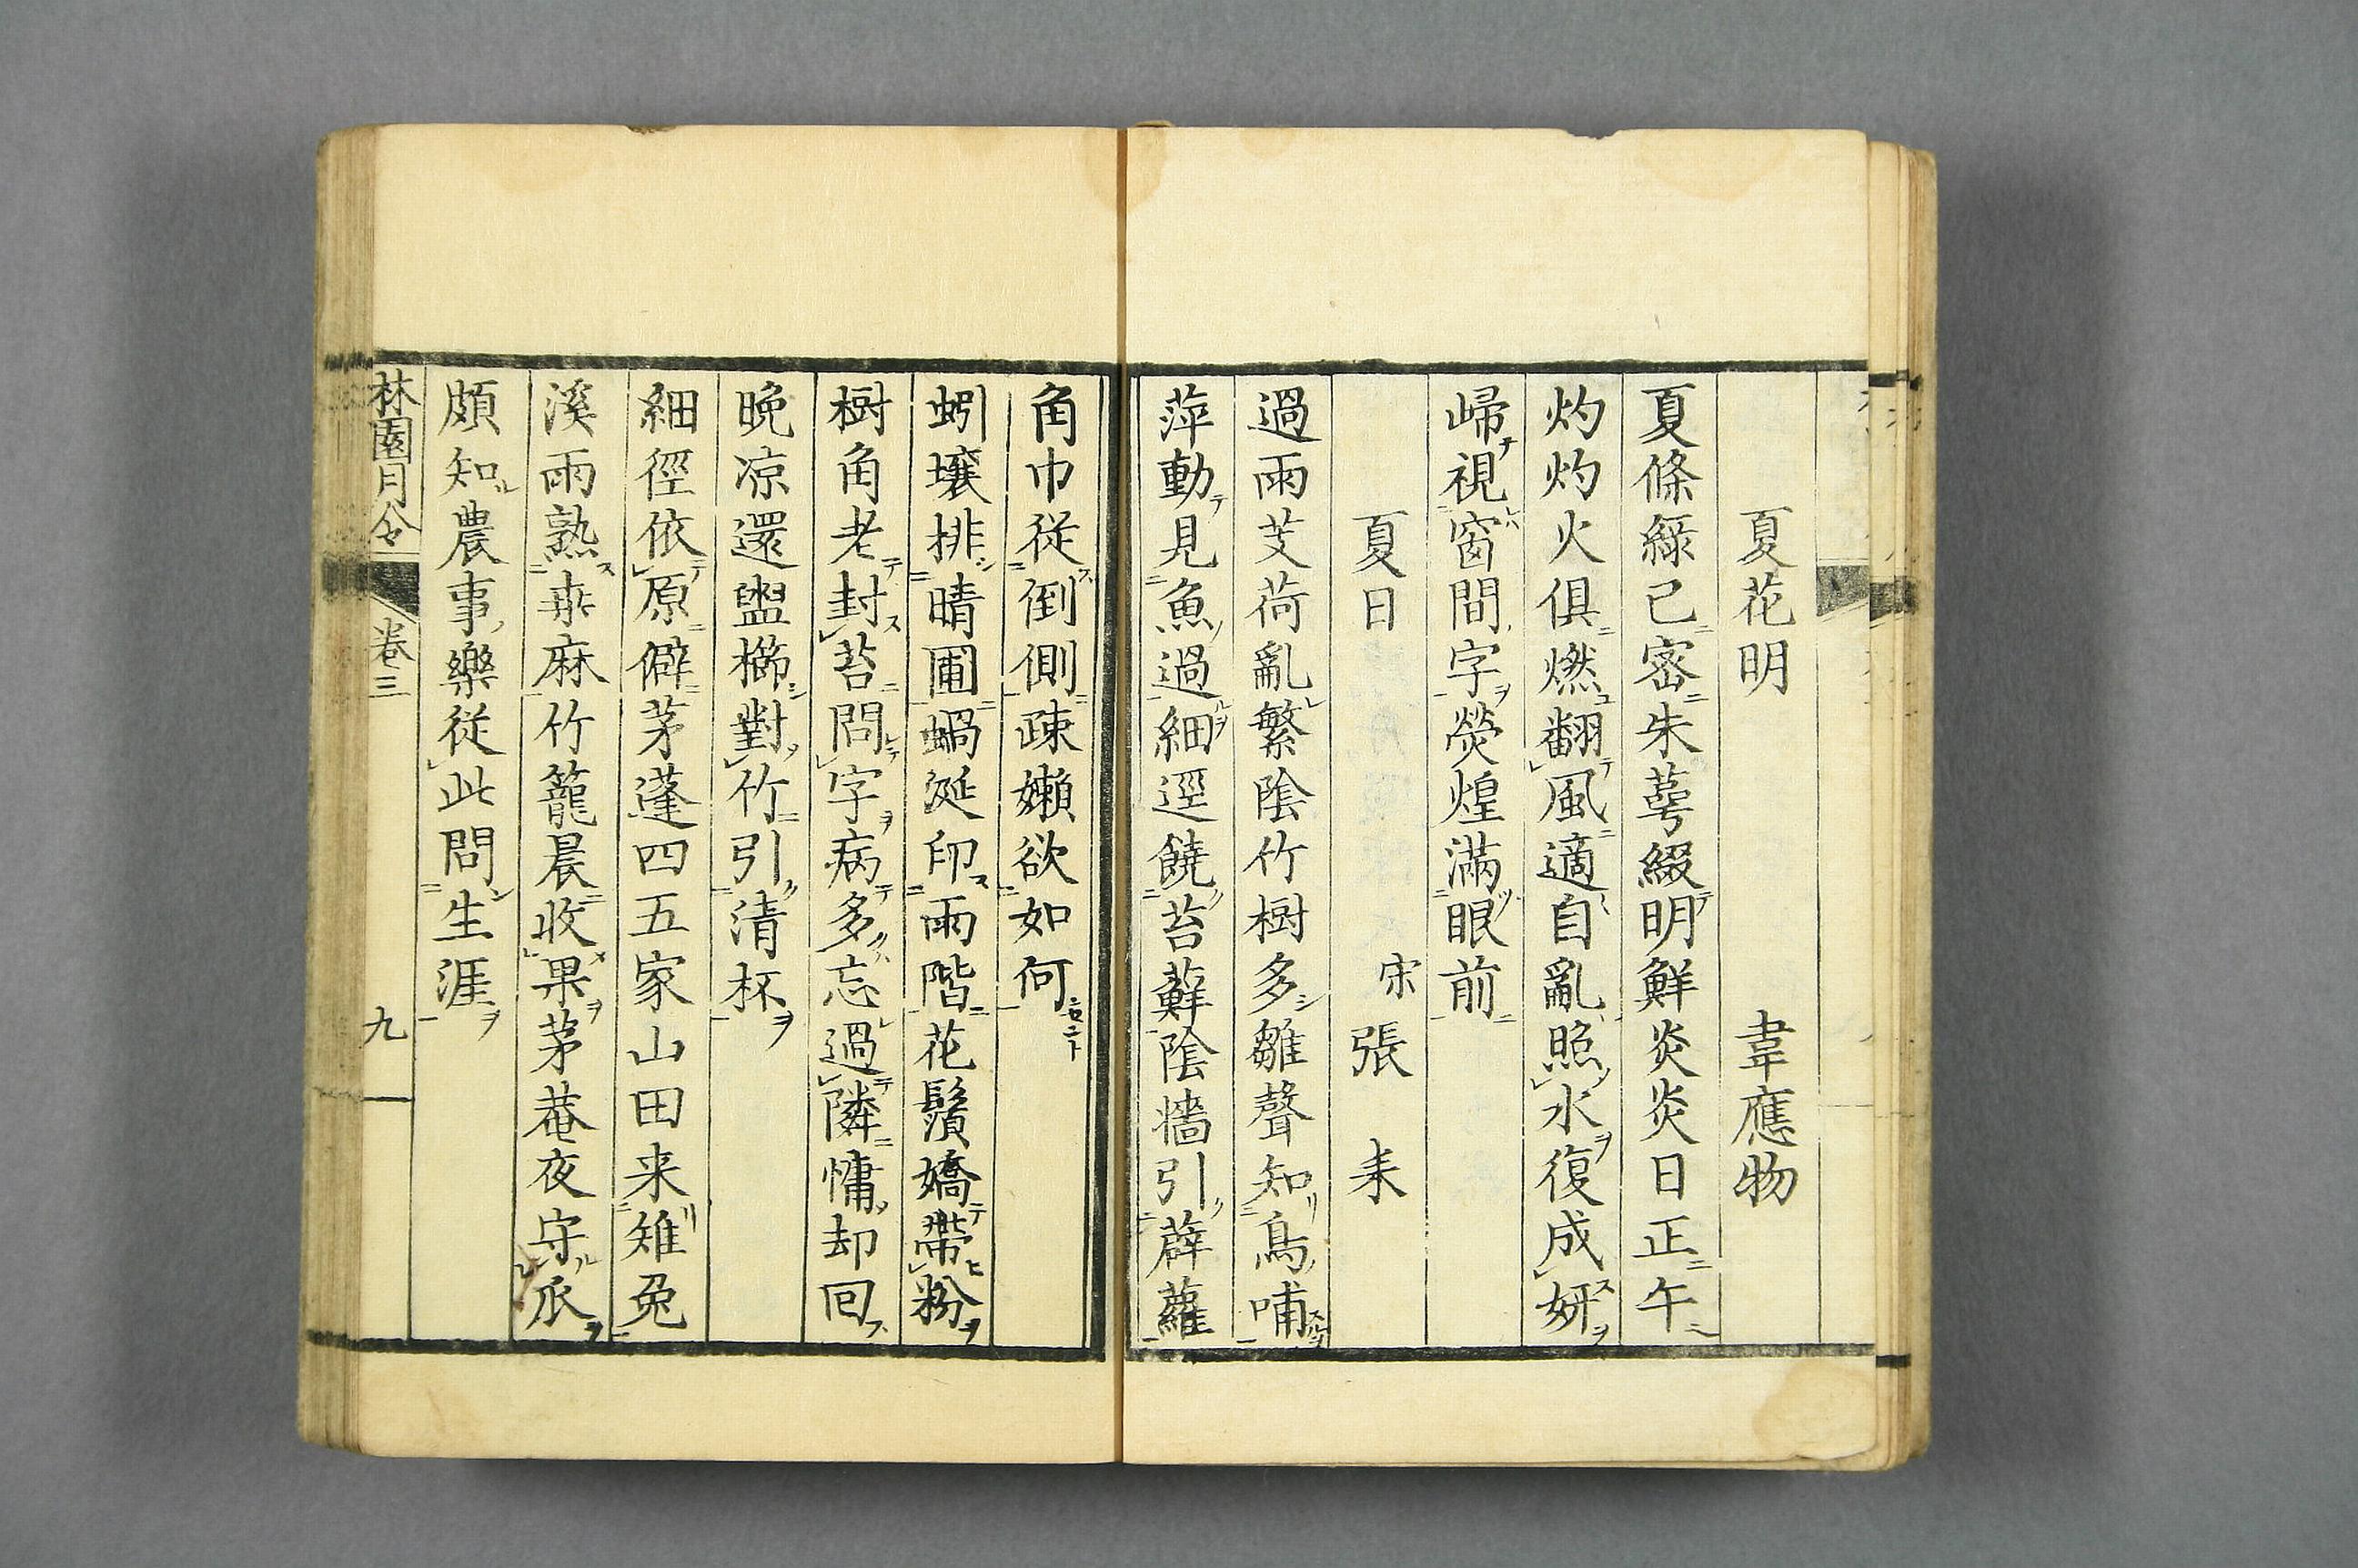 夏花明 韋應物
夏條綠已密朱萼綴明鮮炎炎日正午
灼灼火俱燃翻風適自亂照水復成妍
歸視窗間字熒煌滿眼前
夏日 宋張耒
過雨芰荷亂繁陰竹樹多雛聲知鳥哺
萍動見魚過細逕饒苔蘚陰墻引薜蘿
角巾従倒側疎嬾欲如何
蚓壤排晴圃蝸涎印雨階花鬚嬌帶粉
樹角老封苔問字病多忘過隣慵却回
晩凉還盥櫛對竹引清杯
細徑依原僻茅蓬四五家山田来雉兔
溪雨熟桒麻竹籠晨收果茅菴夜守瓜
頗知農事樂従此問生涯
林園月令 卷三 九